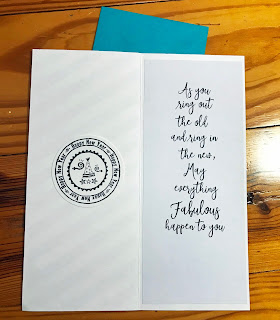 Happy New Year Happy New Year Happy New Year Happy New Year
As you
ring out
the old
and ring in
the new,
May
everything
Fabulous
happen to you